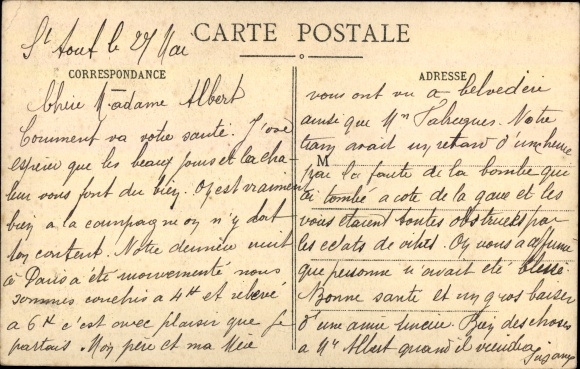 CARTE POSTALE
CORRESPONDANCE
ADRESSE
M
St le 27 Mai
Chère Madame Albert
Comment va votre santé. J'ose
espérer que les beaux jours et la cha-
leur vous font du bien. On est vraiment
bien a la campagne on n'y dort
content. Notre dernière nuit
à Paris a été mouvementé nous
sommes couchés a 4 et relevé
a 6 c'est avec plaisir que je
partais. Mon père et ma Mère
vous ont vu a belvedère
ainsi que Mr Fabregues. Notre
train avait un retard d'une heure
par la faute de la bombe qui
tombé a coté de la gare et les
étaient toutes obstruées par
les eclats de vitres. On vous a affirmé
que personne n'avait été blessé
Bonne santé et un gros baiser
d'une amie sincère Bien des choses
a Mr Albert quand il viendra
Suzanne